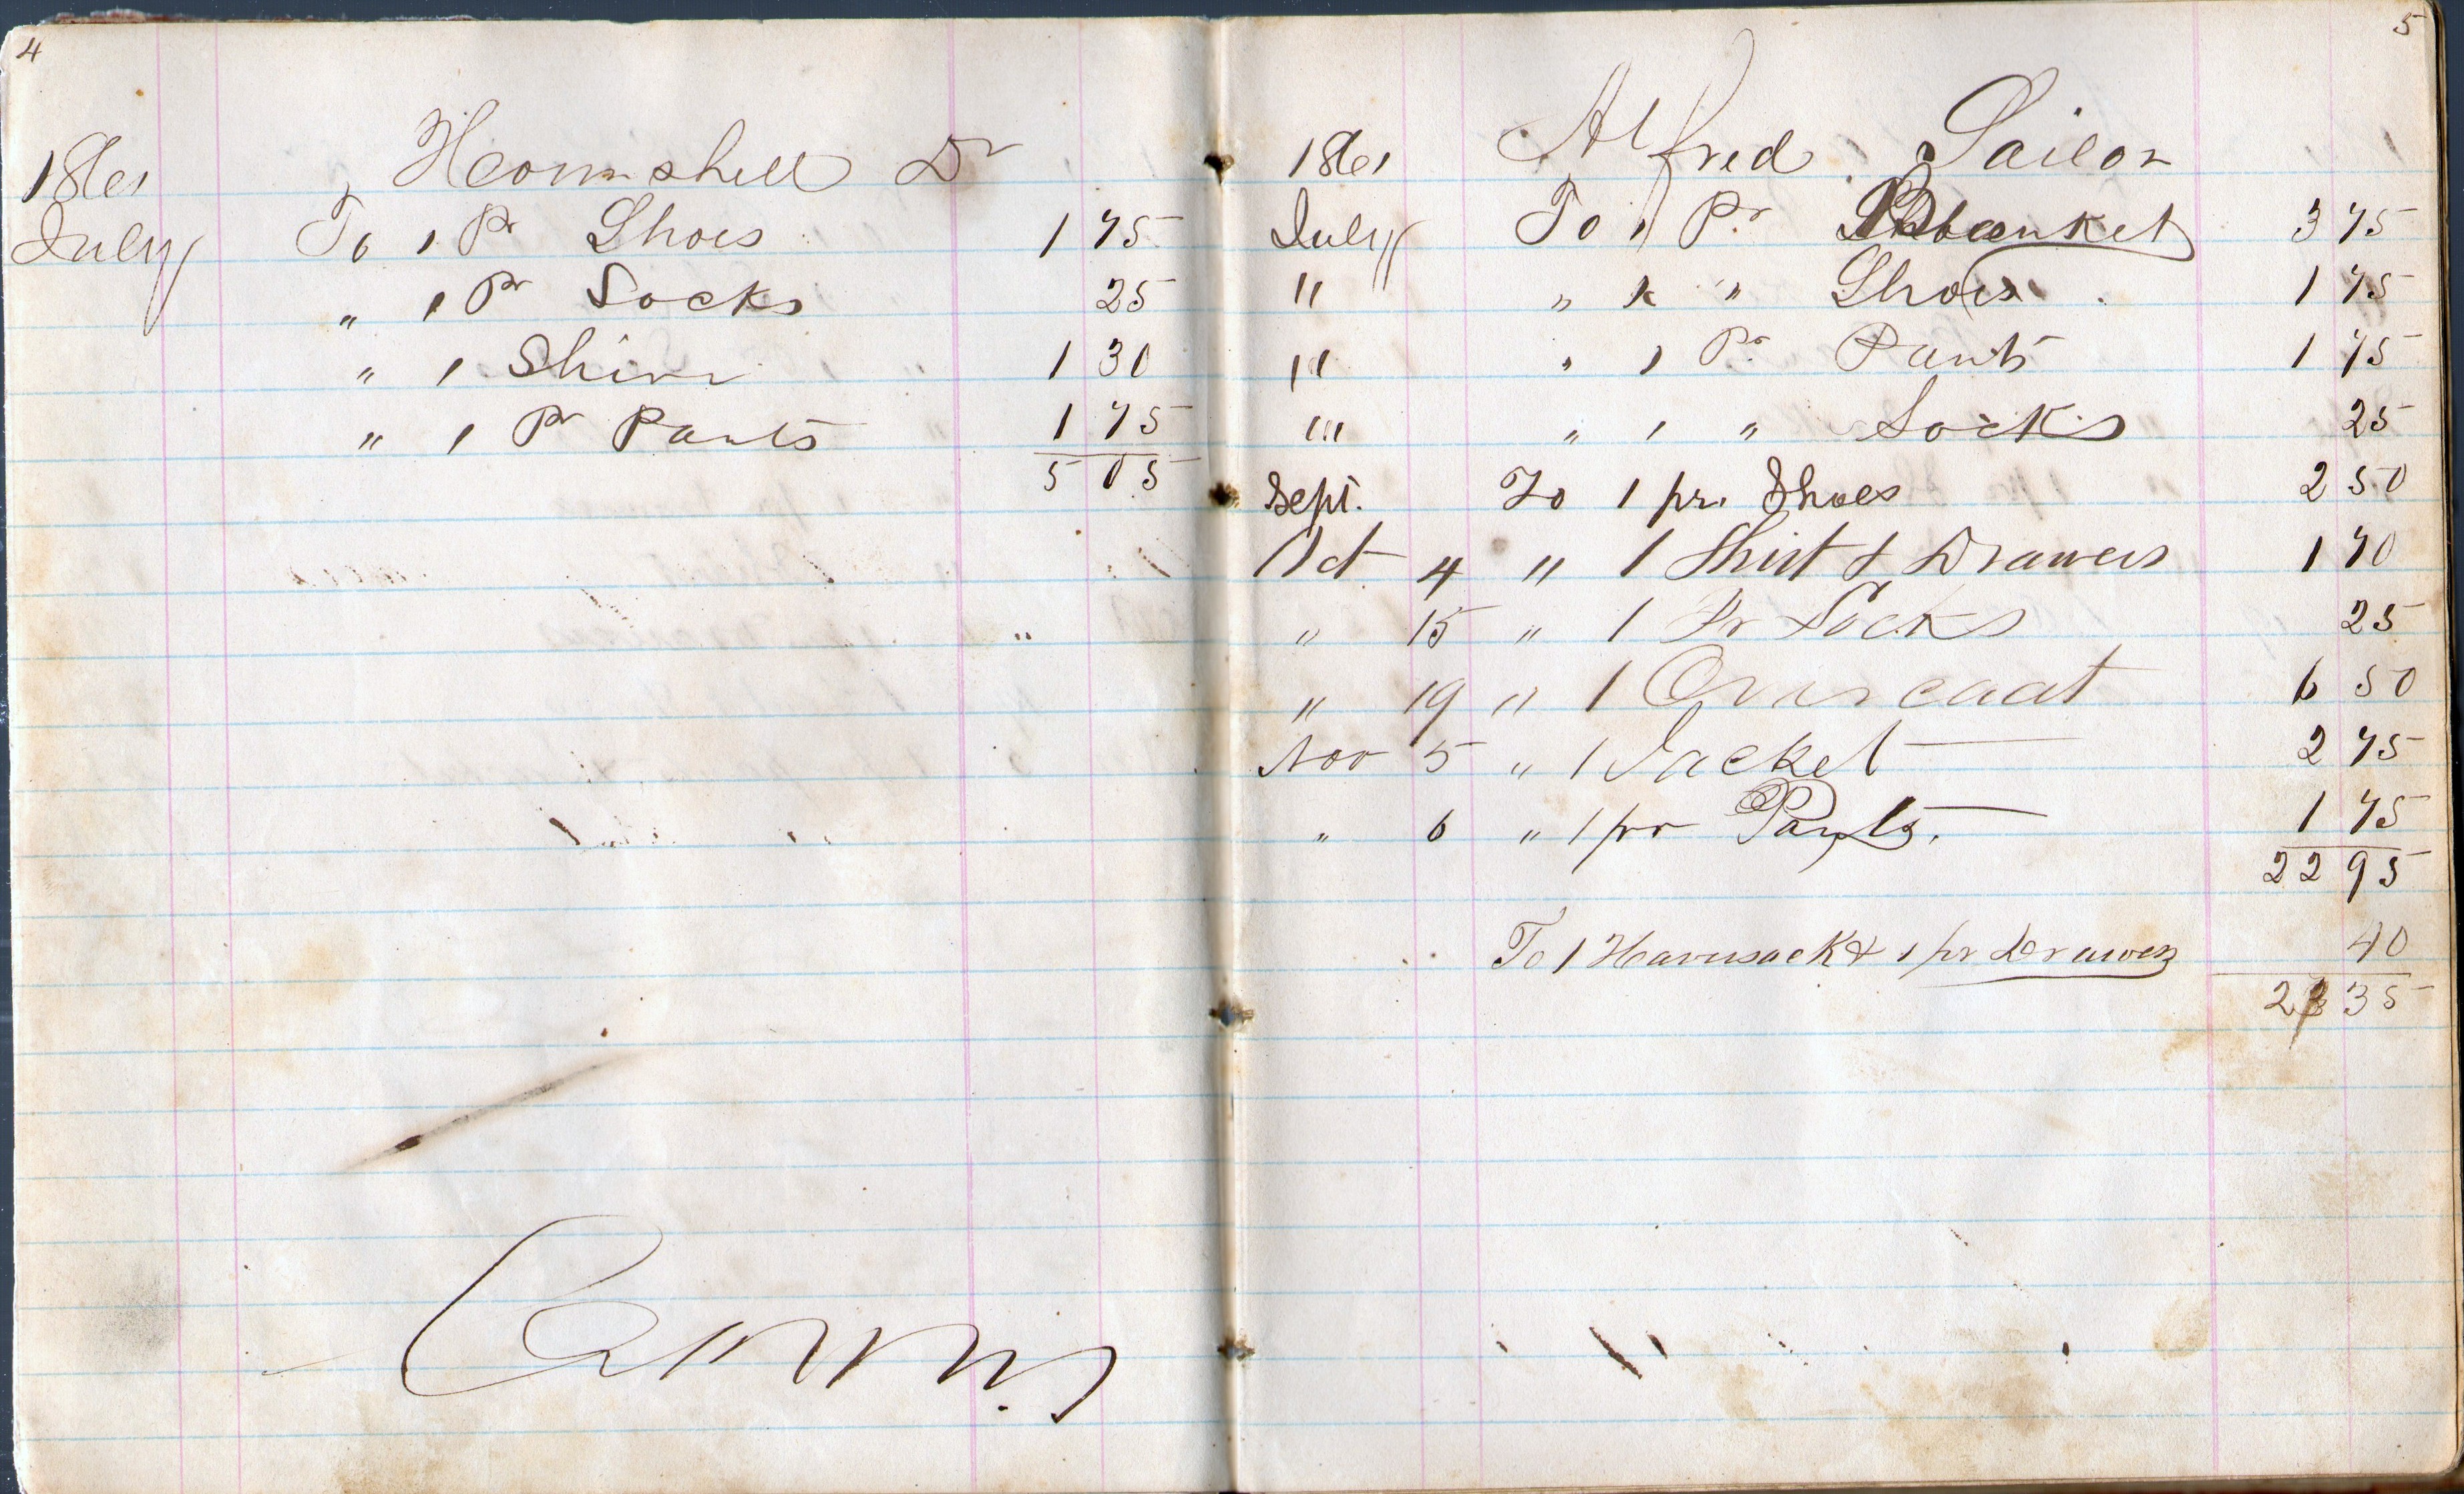 4
1861 Heornshell Dr
July To 1 Pr Shoes 1 75
" 1 Pr Socks 25
" 1 Shirt 1 30
" 1 Pr Pants 1 75
5 05
5
1861 Alfred Sailor
July To 1 Pr Blanket 3 75
" " 1 " Shoes 1 75
" " 1 Pr Pants 1 75
" " 1 " Socks 25
Sept. To 1 pr. Shoes 2 50
Oct 4 " 1 Shirt & Drawers 1 70
" 15 " 1 Pr Socks 25
" 19 " 1 Overcoat 6 50
Nov 5 " 1 Jacket 2 75
" 6 " 1 pr Pants. 1 75
22 95
To 1 Haversack & 1 pr Drawers 40
23 35